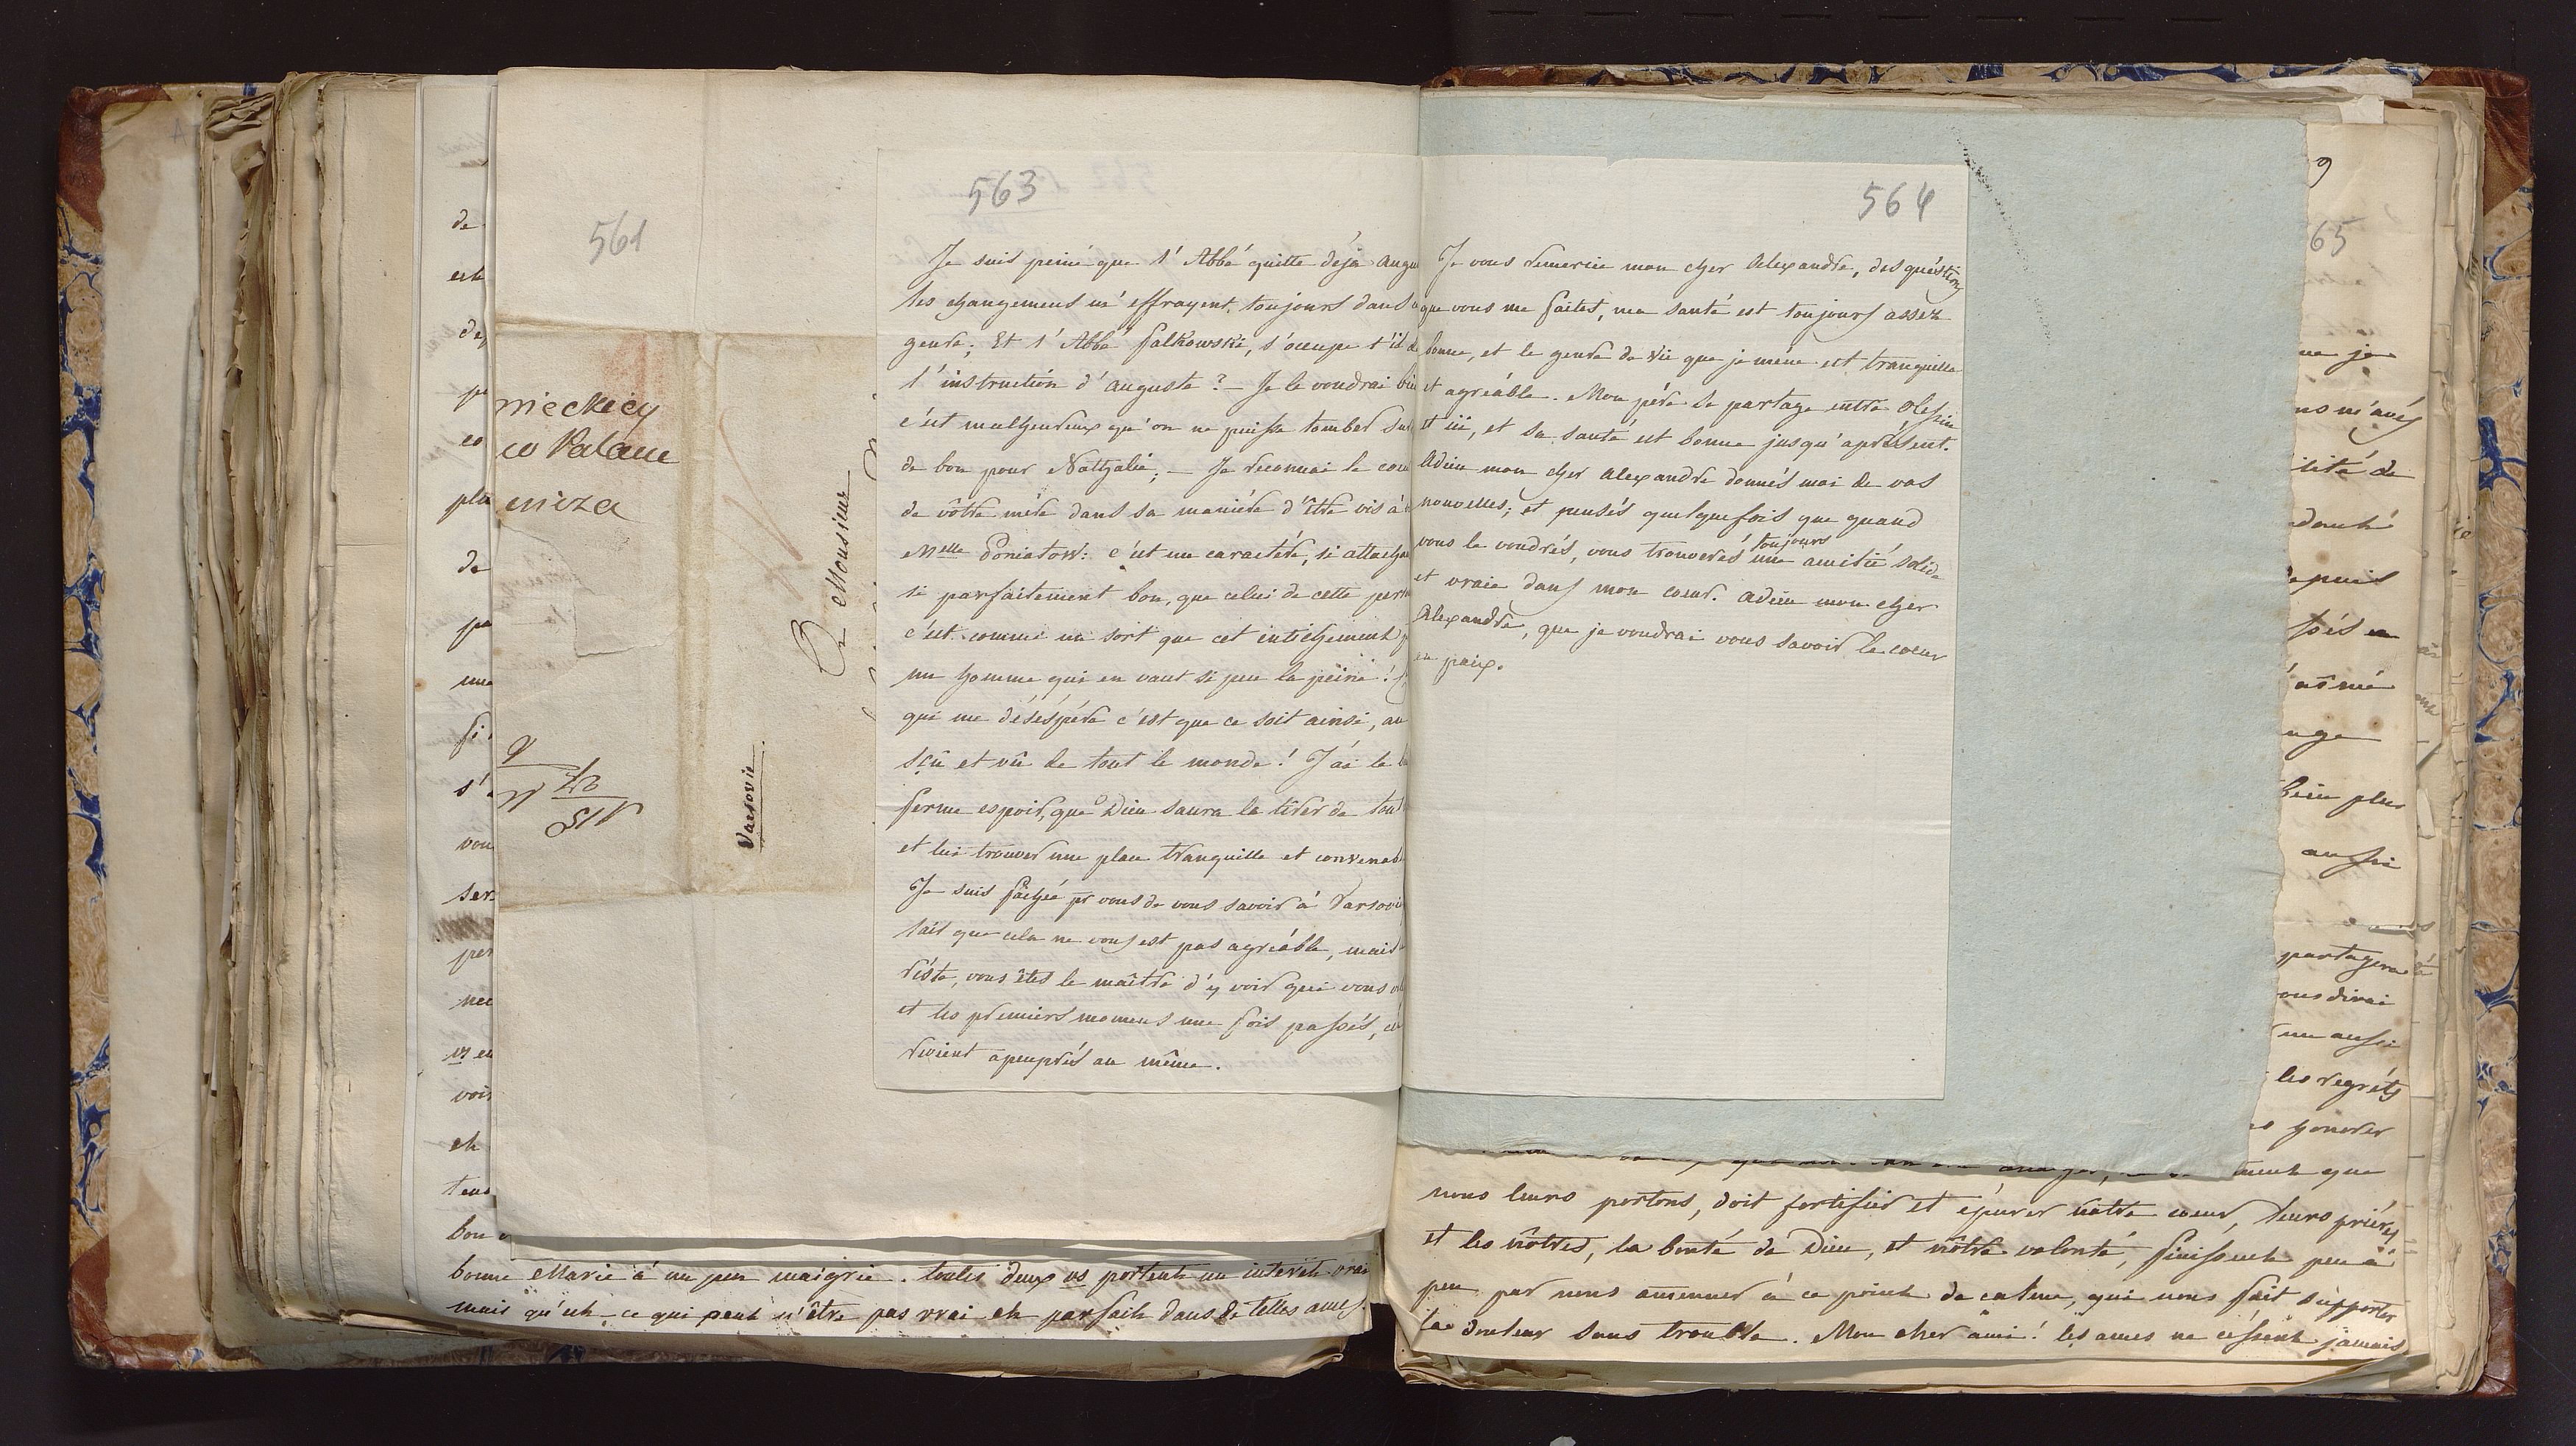 561
nieckiey
co Palace
enieza
à Monsieur
Varsovie.
563
Je suis peiné que l'Abbé quitte déja Augu
les changemens m'effrayent toujours dans
genre; Et l'Abbé Falkowski, s'occupe t'il de
l'instruction d'auguste? – Je le voudrai
c'est malheureux qu'on ne puisse tomber sur
de bon pour Nathalie; – Je reconnai le
de vôtre mére dans sa maniére d'être vis à
Melle Poniatow: c'est un caractére, si attacha
si parfaitement bon, que celui de cette pers
c'est comme un sort que cet entichement
un homme qui en vaut si peu la peine!
qui me désespére c'est que ce soit ainsi, au
sçu et vû de tout le monde! J'ai le
ferme espoir, que Dieu saura la tirer de tout
et lui trouver une place tranquille et convenab
Je suis fachée pr vous de vous savoir à Varsovie
sait que cela ne vous est pas agréable, mais
réste, vous êtes le maître d'y voir qui vous
et les premiers momens une fois passés,
revient apeuprés au même.
564
Je vous remercie mon cher Alexandre, des questions
que vous me faites, ma santé est toujours assez
bonne, et le genre de vie que je méne est tranquille
et agréable. Mon pére se partage entre Olesin
et ici, et sa santé est bonne jusqu'aprésent.
Adieu mon cher Alexandre donnés moi de vos
nouvelles; et pensés quelquefois que quand
vous le voudrés, vous trouverés toujours une amitié solide
et vraie dans mon coeur. adieu mon cher
Alexandre, que je voudrai vous savoir le coeur
en paix.
65
de
est
de
pe
co
plu
de
pa
une
si
s'
vou
ser
per
voir
et
tous
bon
bonne Marie à un peu maigrie. toutes deux vs portent un interêt vrai
mais qu'est-ce qui peut n'être pas vrai et parfait dans de telles ames.
ne je
ns m'avés
depuis
Bien plus
aussi
partagera
ous dirai
un aussi
les regréts
honorer
que
nous leurs portons, doit fortifier et épurer nôtre coeur, leurs priéres
et les nôtres, la bonté de Dieu, et nôtre volonté, finissent peu à
peu par nous ammener à ce point de calme, qui nous fait supporter
la douleur sans trouble. Mon cher ami! les ames ne céssent jamais